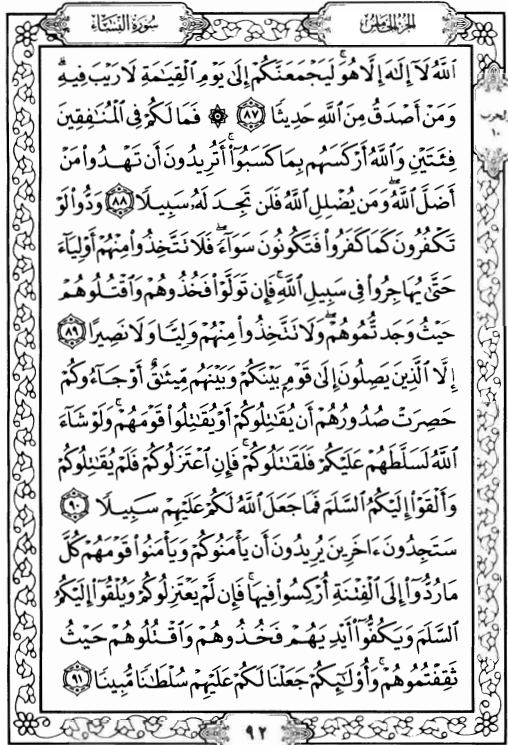 الجزء الخامس
سُورَةُ النِّسَاءِ
ٱللَّهُ لَآ إِلَٰهَ إِلَّا هُوَۚ لَيَجْمَعَنَّكُمْ إِلَىٰ يَوْمِ ٱلْقِيَٰمَةِ لَا رَيْبَ فِيهِۗ
وَمَنْ أَصْدَقُ مِنَ ٱللَّهِ حَدِيثًا ٨٧ ۞ فَمَا لَكُمْ فِى ٱلْمُنَٰفِقِينَ
فِئَتَيْنِ وَٱللَّهُ أَرْكَسَهُم بِمَا كَسَبُوٓا۟ۚ أَتُرِيدُونَ أَن تَهْدُوا۟ مَنْ
أَضَلَّ ٱللَّهُۖ وَمَن يُضْلِلِ ٱللَّهُ فَلَن تَجِدَ لَهُۥ سَبِيلًا ٨٨ وَدُّوا۟ لَوْ
تَكْفُرُونَ كَمَا كَفَرُوا۟ فَتَكُونُونَ سَوَآءًۖ فَلَا تَتَّخِذُوا۟ مِنْهُمْ أَوْلِيَآءَ
حَتَّىٰ يُهَاجِرُوا۟ فِى سَبِيلِ ٱللَّهِۚ فَإِن تَوَلَّوْا۟ فَخُذُوهُمْ وَٱقْتُلُوهُمْ
حَيْثُ وَجَدتُّمُوهُمْۖ وَلَا تَتَّخِذُوا۟ مِنْهُمْ وَلِيًّا وَلَا نَصِيرًا ٨٩
إِلَّا ٱلَّذِينَ يَصِلُونَ إِلَىٰ قَوْمٍۭ بَيْنَكُمْ وَبَيْنَهُم مِّيثَٰقٌ أَوْ جَآءُوكُمْ
حَصِرَتْ صُدُورُهُمْ أَن يُقَٰتِلُوكُمْ أَوْ يُقَٰتِلُوا۟ قَوْمَهُمْۚ وَلَوْ شَآءَ
ٱللَّهُ لَسَلَّطَهُمْ عَلَيْكُمْ فَلَقَٰتَلُوكُمْۚ فَإِنِ ٱعْتَزَلُوكُمْ فَلَمْ يُقَٰتِلُوكُمْ
وَأَلْقَوْا۟ إِلَيْكُمُ ٱلسَّلَمَ فَمَا جَعَلَ ٱللَّهُ لَكُمْ عَلَيْهِمْ سَبِيلًا ٩٠
سَتَجِدُونَ ءَاخَرِينَ يُرِيدُونَ أَن يَأْمَنُوكُمْ وَيَأْمَنُوا۟ قَوْمَهُمْ كُلَّ
مَا رُدُّوٓا۟ إِلَى ٱلْفِتْنَةِ أُرْكِسُوا۟ فِيهَاۚ فَإِن لَّمْ يَعْتَزِلُوكُمْ وَيُلْقُوٓا۟ إِلَيْكُمُ
ٱلسَّلَمَ وَيَكُفُّوٓا۟ أَيْدِيَهُمْ فَخُذُوهُمْ وَٱقْتُلُوهُمْ حَيْثُ
ثَقِفْتُمُوهُمْۚ وَأُو۟لَٰٓئِكُمْ جَعَلْنَا لَكُمْ عَلَيْهِمْ سُلْطَٰنًا مُّبِينًا ٩١
الحزب
١٠
٩٢